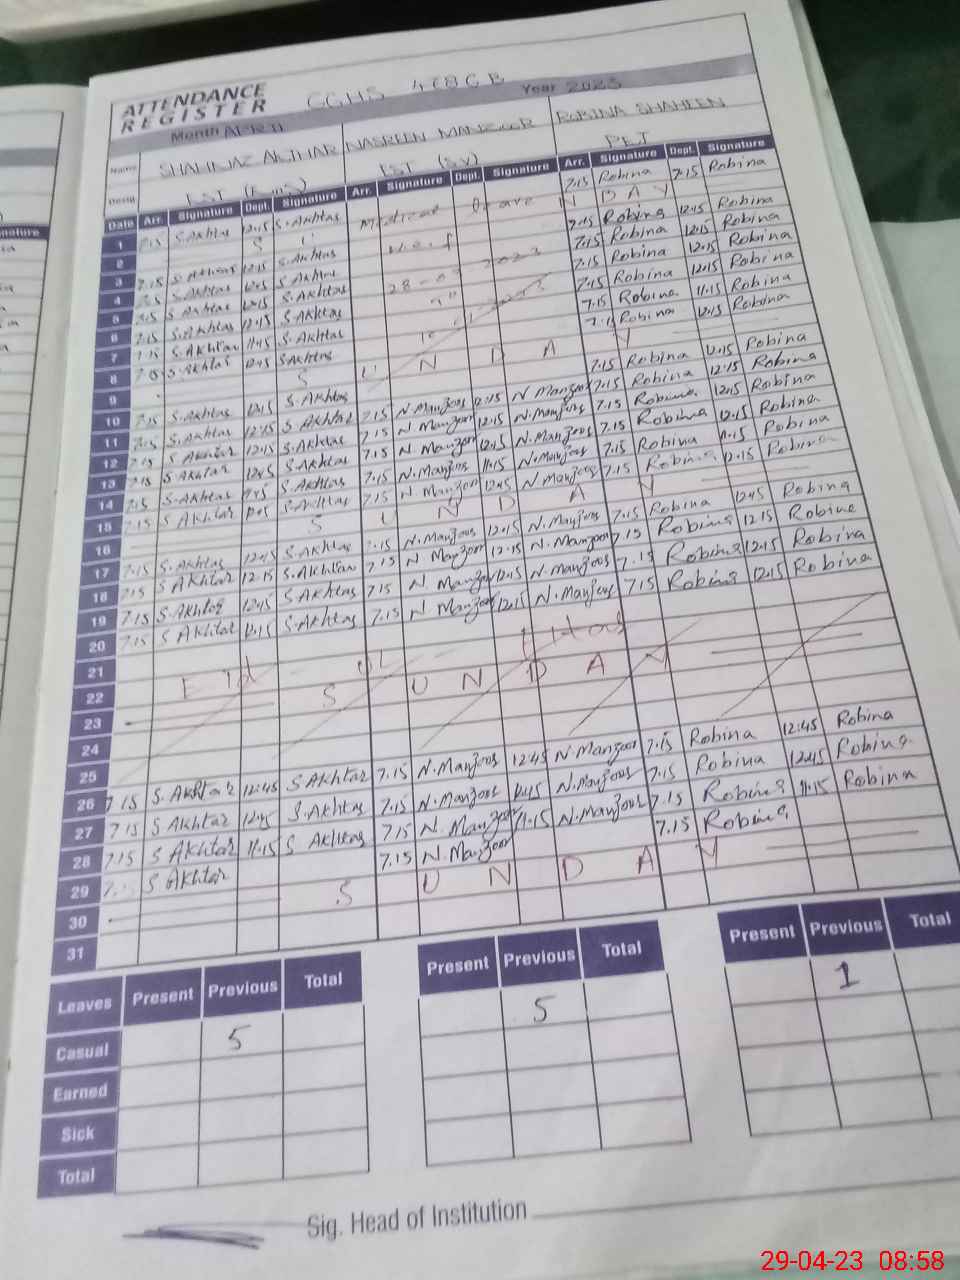 ATTENDANCE REGISTER GGHS 478 G B
Month APRIL Year 2023
Name SHAHNAZ AKTHAR NASREEN MANZOOR ROBINA SHAHEEN
Desig EST EST PET
Date Arr. Signature Dept. Signature Arr. Signature Dept. Signature Arr. Signature Dept. Signature
1 7.15 S.Akhtas 12.15 S.Akhtas Medical leave 7.15 Robina 7.15 Robina
2 S U w.e.f N D A Y
3 7.15 S.Akhtas 12.15 S.Akhtas 7.15 Robina 12.15 Robina
4 S.Akhtas S.Akhtas 28-03-2023 7.15 Robina 12.15 Robina
5 7.15 S.Akhtas 12.15 S.Akhtas 7.15 Robina 12.15 Robina
6 7.15 S.Akhtas 12.15 S.Akhtas to 7.15 Robina 12.15 Robina
7 7.15 S.Akhtar 11.15 S.Akhtas 7.15 Robina 11.15 Robina
8 S.Akhtar 12.15 S.Akhtas Robina 12.15 Robina
9 S U N D A Y
10 7.15 S.Akhtas 12.15 S.Akhtas 7.15 N.Manzoor 12.15 N Manzoor 7.15 Robina 12.15 Robina
11 7.15 S.Akhtas 12.15 S Akhtar 7.15 N Manzoor 12.15 N.Manzoor 7.15 Robina 12.15 Robina
12 7.15 S Akhtar 12.15 S.Akhtas 7.15 N Manzoor 12.15 N.Manzoor 7.15 Robina 12.15 Robina
13 7.15 S Akhtar 12.15 S.Akhtas 7.15 N.Manzoor 12.15 N.Manzoor 7.15 Robina 12.15 Robina
14 7.15 S.Akhtas S.Akhtas 7.15 N.Manzoor 11.15 N.Manzoor 7.15 Robina 11.15 Robina
15 7.15 S Akhtar S.Akhtas 7.15 N Manzoor 12.45 N Manzoor 7.15 Robina 12.15 Robina
16 S U N D A Y
17 7.15 S.Akhtas 12.45 S.Akhtas 7.15 N.Manzoor 12.15 N.Manzoor 7.15 Robina 12.45 Robina
18 7.15 S Akhtar 12.15 S.Akhtar 7.15 N Manzoor 12.15 N.Manzoor 7.15 Robina 12.15 Robina
19 7.15 S.Akhtar 12.45 S.Akhtas 7.15 N Manzoor 12.15 N.Manzoor 7.15 Robina 12.15 Robina
20 7.15 S Akhtar 12.15 S.Akhtas 7.15 N Manzoor 12.15 N.Manzoor 7.15 Robina 12.15 Robina
21
22 Eid ul Fitar
23 S U N D A Y
24
25
26 7.15 S.Akhtar 12.45 S Akhtar 7.15 N.Manzoor 12.45 N Manzoor 7.15 Robina 12.45 Robina
27 7.15 S Akhtar 12.45 S.Akhtas 7.15 N.Manzoor 12.45 N.Manzoor 7.15 Robina 12.45 Robina
28 7.15 S Akhtar 11.15 S Akhtas 7.15 N Manzoor 11.15 N.Manzoor 7.15 Robina 11.15 Robina
29 S Akhtar 7.15 N.Manzoor 7.15 Robina
30 S U N D A Y
31
Leaves Present Previous Total Present Previous Total Present Previous Total
Casual 5 5 1
Earned
Sick
Total
Sig. Head of Institution
29-04-23 08:58